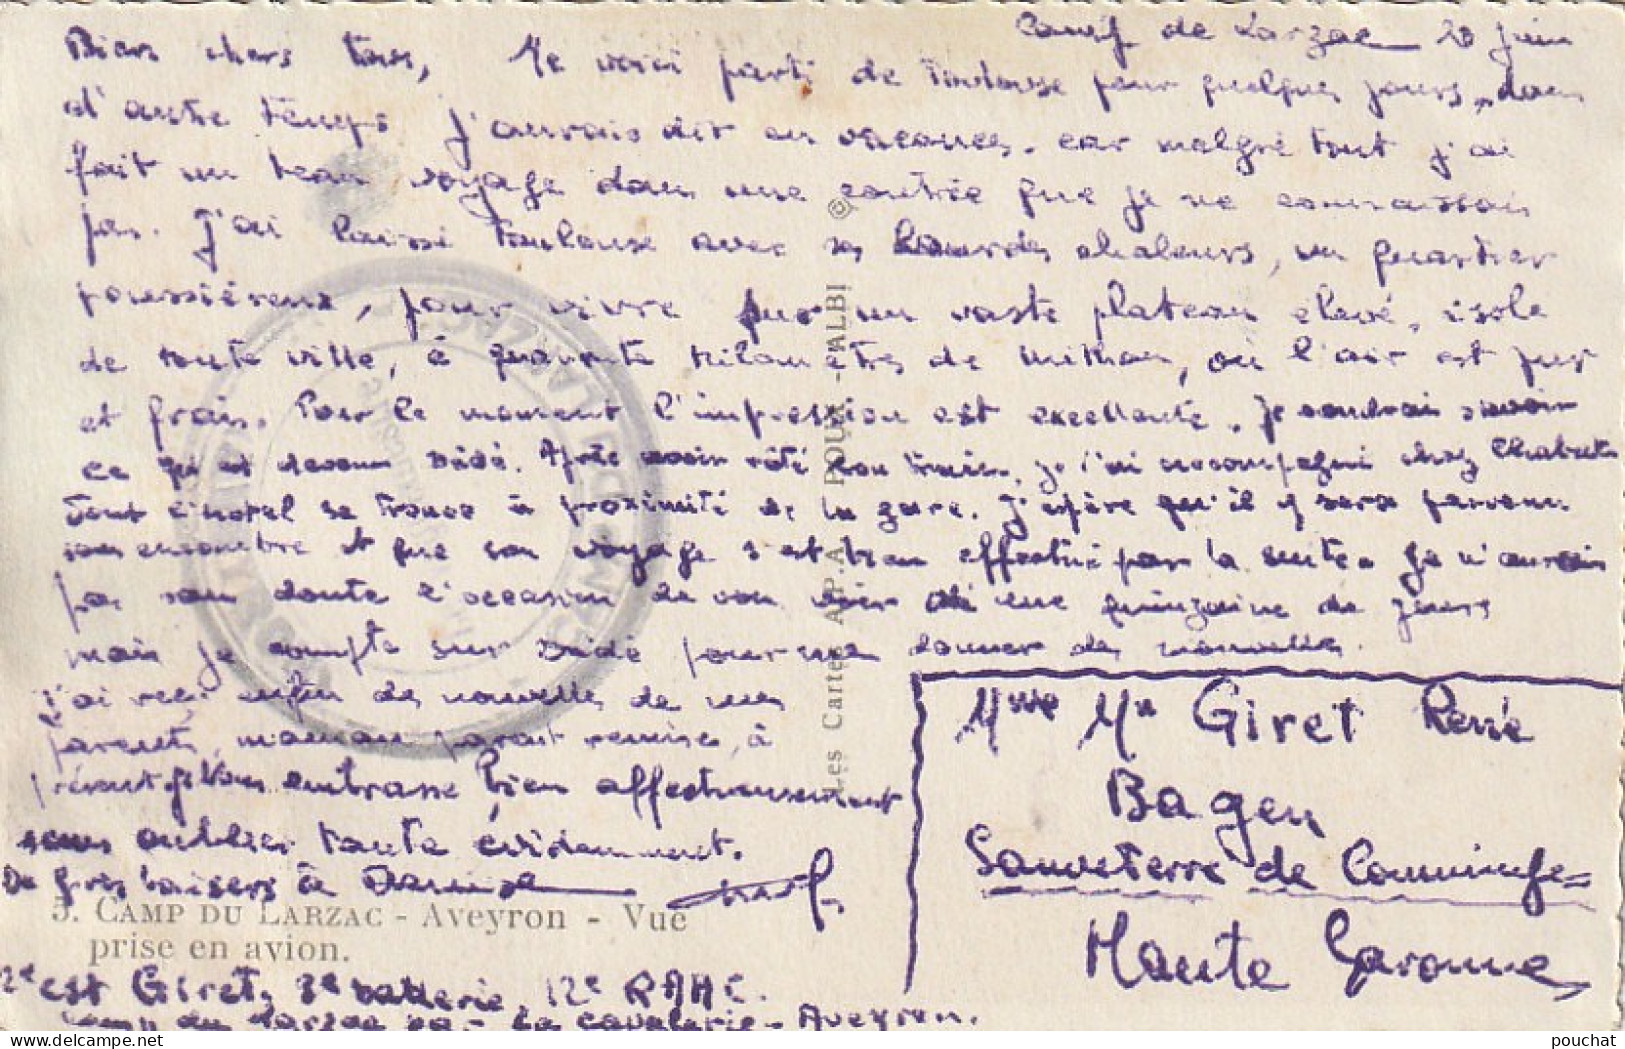 Camp de Larzac 20 juin
Bien chers tous, Me voici parti de Toulouse pour quelques jours, dans
d'autre temps j'aurais dit en vacances. car malgré tout j'ai
fait un beau voyage dans une contrée que je ne connaissais
pas. J'ai laissé Toulouse avec ses lourdes chaleurs, un quartier
poussiéreux, pour vivre sur un vaste plateau elevé, isole
de toute ville, à quarante kilomètres de Milhau, où l'air est pur
et frais. Pour le moment l'impression est excellente. Je voudrai savoir
ce qui est devenu Dédé. Après avoir râté son train, je l'ai accompagné chez
dont l'hotel se trouve à proximité de la gare. J'espère qu'il y sera parvenu
sans encombre et que son voyage s'est bien effectué par la suite. Je n'aurais
pas sans doute l'occasion de vous voir de une quinzaine de jours
mais je compte sur Dédé pour me donner des nouvelles.
j'ai reçu enfin de nouvelles de mes
parents, maman parait remise, à
présent je vous embrasse bien affectueusement
sans oublier tante évidemment.
De gros baisers à Danise
5. CAMP DU LARZAC - Aveyron - Vue
prise en avion.
2e cst Giret, 3e batterie, 12e RAAC.
Camp du Larzac par La Cavalerie - Aveyron.
Mme Mr Giret René
Bagen
Sauveterre de Comminge
Haute Garonne
Les Cartes A.P.A. POUX - ALBI ©
pouchat